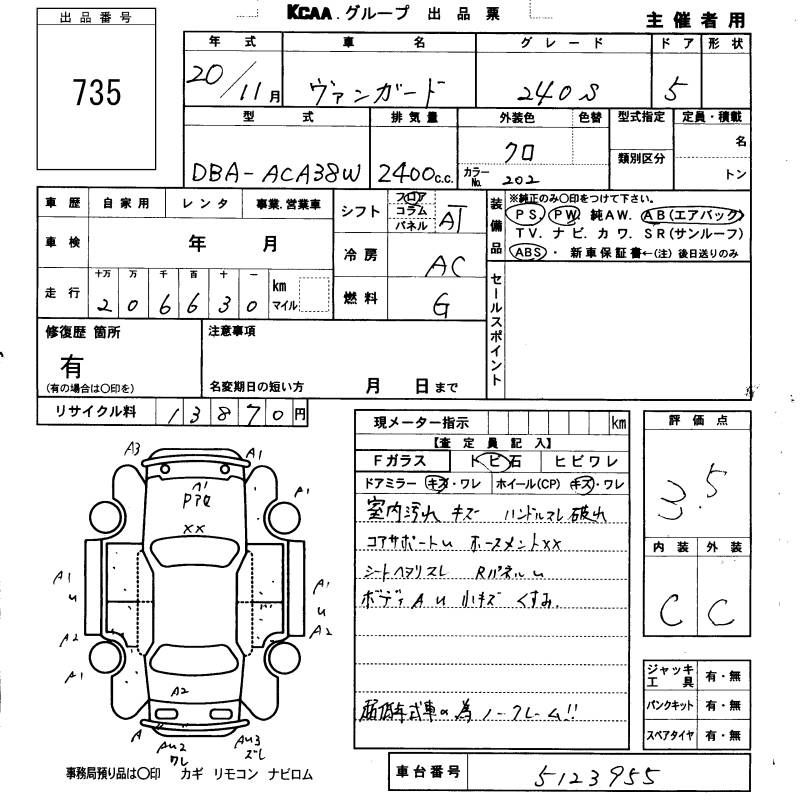 KCAA グループ 出品票
主催者用
出品番号
735
年式 車名 グレード ドア 形状
20/11月 ヴァンガード 240S 5
型式 排気量 外装色 色替 型式指定 定員・積載
名
DBA-ACA38W 2400c.c. クロ 類別区分
カラーNo. 202 トン
車歴 自家用 レンタ 事業.営業車
シフト フロア コラム パネル AT
装備品 ※純正のみ○印をつけて下さい。
PS. PW. 純AW. AB(エアバック)
TV. ナビ. カワ. SR(サンルーフ)
ABS・ 新車保証書←(注) 後日送りのみ
車検 年 月
冷房 AC
走行 十万 万 千 百 十 一
206630 km マイル
燃料 G
セールスポイント
修復歴 箇所
有
(有の場合は○印を)
注意事項
名変期日の短い方 月 日まで
リサイクル料 13870円
現メーター指示 km
評価点
3.5
【査定員記入】
Fガラス トビ石 ヒビワレ
ドアミラー キズ・ワレ ホイール(CP) キズ・ワレ
室内汚れ キズ ハンドルスレ 破れ
コアサポートU ホースメントXX
シートヘタリスレ RパネルU
ボディAU 小キズ くすみ.
内装 外装
C C
A3 A1
A1
Pアロ
XX
A1 A1
A1 A1
U U
A2 A2
A1
A2
A
AU2 AU3
ワレ ズレ
ジャッキ工具 有・無
パンクキット 有・無
スペアタイヤ 有・無
超低年式車の為 ノークレーム!!
事務局預り品は○印 カギ リモコン ナビロム
車台番号 5123955